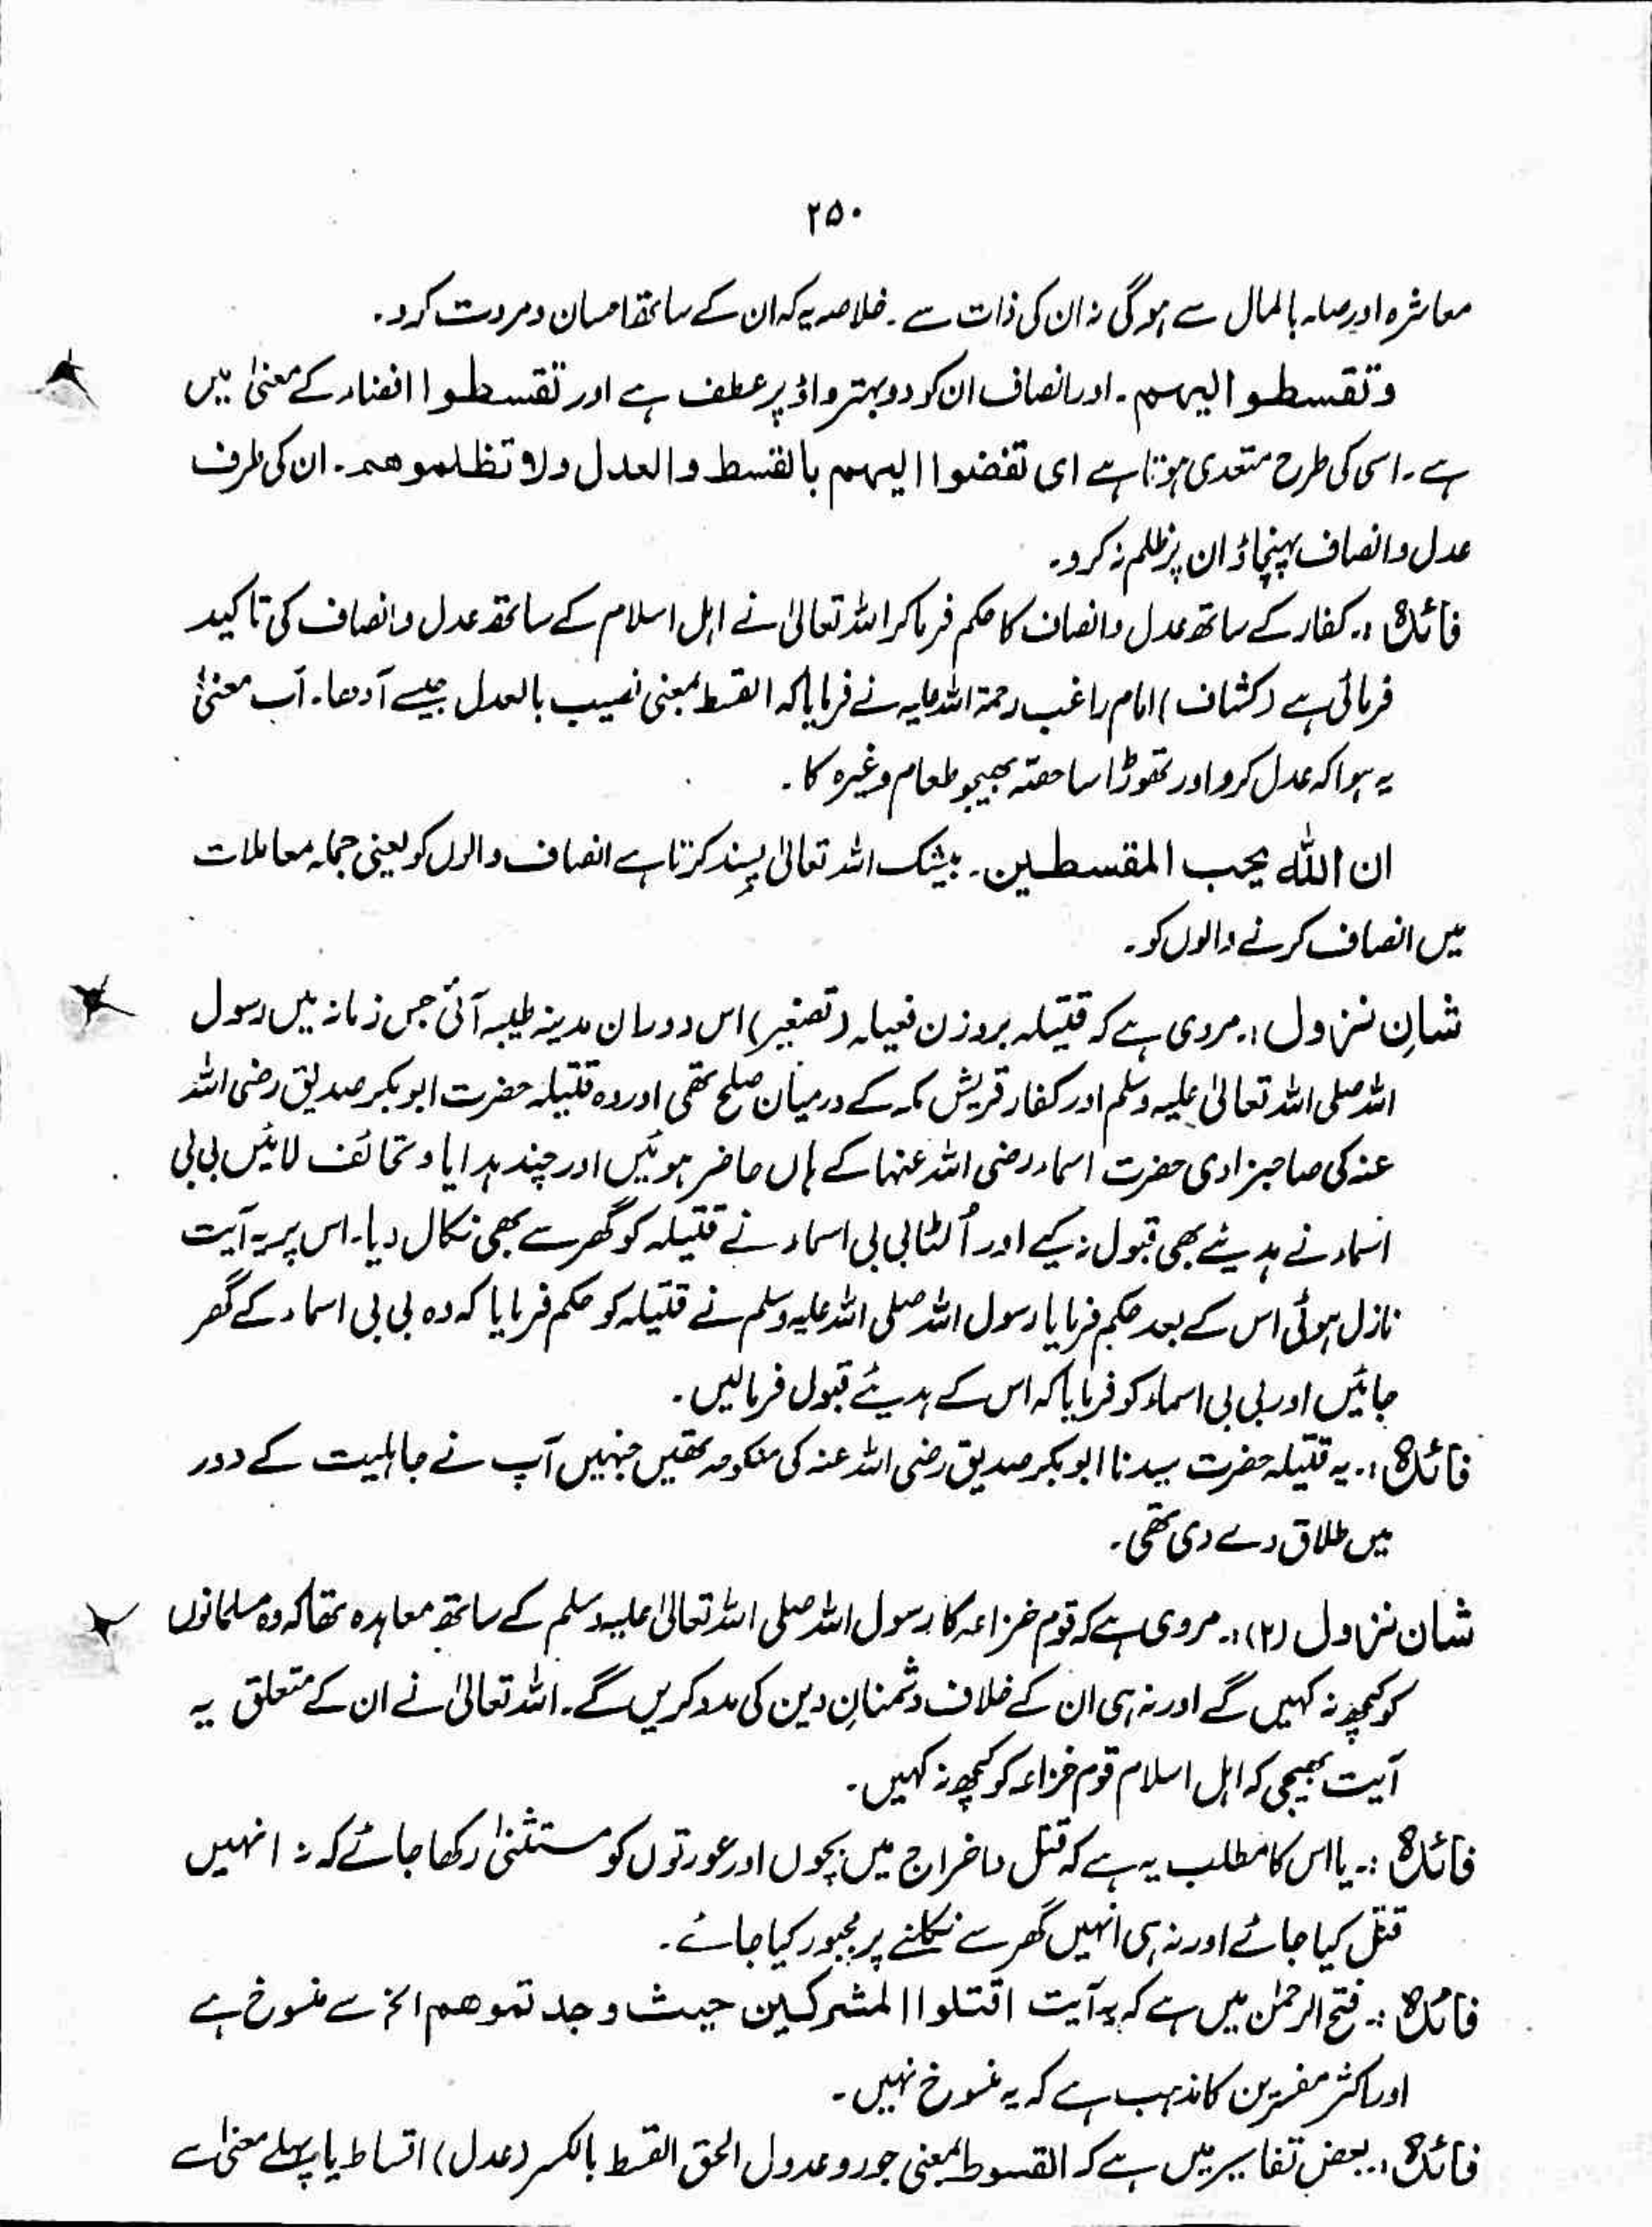 ۲۵۰
معاشرہ اور صلہ بالمال سے ہوگی نہ ان کی ذات سے۔ خلاصہ یہ کہ ان کے ساتھ احسان و مروت کرو۔
وتقسطوا الیہم۔ اور انصاف ان کو دو بہتر واؤ پر عطف ہے اور تقسطوا افضاء کے معنیٰ میں
ہے۔ اسی کی طرح متعدی ہوتا ہے ای تفضوا الیہم بالقسط والعدل ولا تظلموھم۔ ان کی طرف
عدل و انصاف پہنچاؤ ان پر ظلم نہ کرو۔
فائدہ :۔ کفار کے ساتھ عدل و انصاف کا حکم فرما کر اللہ تعالیٰ نے اہل اسلام کے ساتھ عدل و انصاف کی تاکید
فرمائی ہے (کشاف) امام راغب رحمۃ اللہ علیہ نے فرمایا کہ القسط بمعنی نصیب بالعدل جیسے آدھا۔ اب معنیٰ
یہ ہوا کہ عدل کرو اور تھوڑا سا حصّہ بھیجو طعام وغیرہ کا۔
ان اللّٰہ یحب المقسطین۔ بیشک اللہ تعالیٰ پسند کرتا ہے انصاف والوں کو یعنی جملہ معاملات
میں انصاف کرنے والوں کو۔
شانِ نزول :۔ مروی ہے کہ قتیلہ بروزن فعیلہ (تصغیر) اس دوران مدینہ طیبہ آئی جس زمانہ میں رسول
اللہ صلی اللہ تعالیٰ علیہ وسلم اور کفار قریش مکہ کے درمیان صلح تھی اور وہ قتیلہ حضرت ابوبکر صدیق رضی اللہ
عنہ کی صاحبزادی حضرت اسماء رضی اللہ عنہا کے ہاں حاضر ہوئیں اور چند ہدایا و تحائف لائیں بی بی
اسماء نے ہدیئے بھی قبول نہ کیے اور اُلٹا بی بی اسماء نے قتیلہ کو گھر سے بھی نکال دیا۔ اس پر یہ آیت
نازل ہوئی اس کے بعد حکم فرمایا رسول اللہ صلی اللہ علیہ وسلم نے قتیلہ کو حکم فرمایا کہ وہ بی بی اسماء کے گھر
جائیں اور بی بی اسماء کو فرمایا کہ اس کے ہدیئے قبول فرمالیں۔
فائدہ :۔ یہ قتیلہ حضرت سیدنا ابوبکر صدیق رضی اللہ عنہ کی منکوحہ تھیں جنہیں آپ نے جاہلیت کے دور
میں طلاق دے دی تھی۔
شان نزول (۲) :۔ مروی ہے کہ قوم خزاعہ کا رسول اللہ صلی اللہ تعالیٰ علیہ وسلم کے ساتھ معاہدہ تھا کہ وہ مسلمانوں
کو کچھ نہ کہیں گے اور نہ ہی ان کے خلاف دشمنانِ دین کی مدد کریں گے۔ اللہ تعالیٰ نے ان کے متعلق یہ
آیت بھیجی کہ اہل اسلام قوم خزاعہ کو کچھ نہ کہیں۔
فائدہ :۔ یا اس کا مطلب یہ ہے کہ قتل و اخراج میں بچوں اور عورتوں کو مستثنیٰ رکھا جائے کہ نہ انہیں
قتل کیا جائے اور نہ ہی انہیں گھر سے نکلنے پر مجبور کیا جائے۔
فائدہ :۔ فتح الرحمٰن میں ہے کہ یہ آیت اقتلوا المشرکین حیث وجدتموھم الخ سے منسوخ ہے
اور اکثر مفسّرین کا مذہب ہے کہ یہ منسوخ نہیں۔
فائدہ :۔ بعض تفاسیر میں ہے کہ القسوط بمعنی جور و عدول الحق القسط بالکسر (عدل) اقساط یا پہلے معنیٰ سے